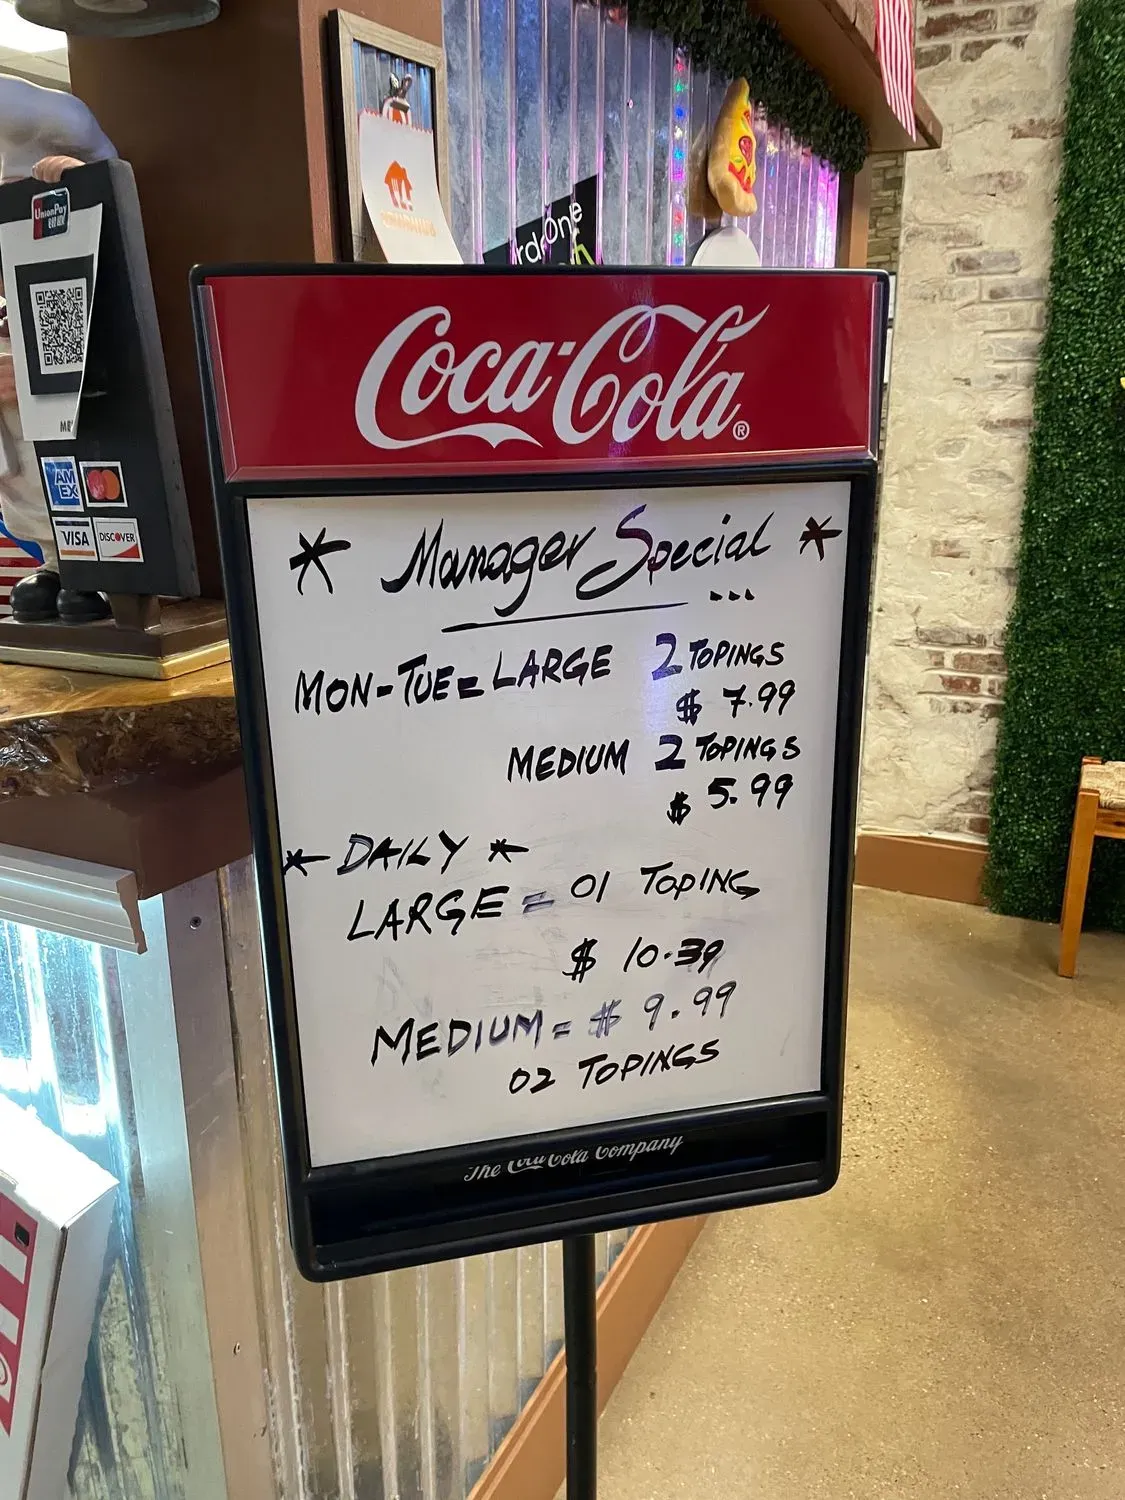 UnionPay
银联
AM
EX
VISA
DISCOVER
Coca-Cola®
* Manager Special *
...
MON-TUE= LARGE 2 TOPINGS
$ 7.99
MEDIUM 2 TOPINGS
$ 5.99
* DAILY *
LARGE = 01 TOPING
$ 10.39
MEDIUM = $ 9.99
02 TOPINGS
The Coca-Cola Company